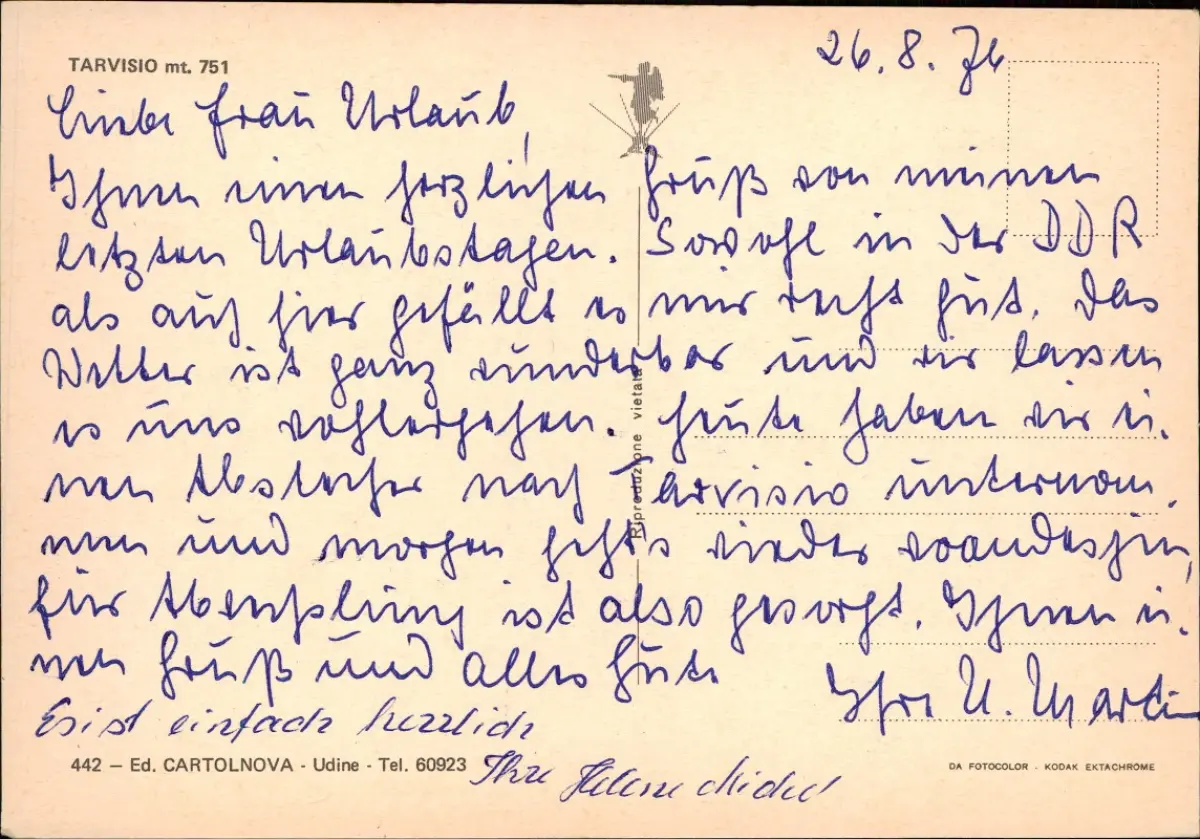 TARVISIO mt. 751
26. 8. 76
Liebe Frau Urlaub,
Ihnen einen herzlichen Gruß von meinen
letzten Urlaubstagen. Sowohl in der DDR
als auch hier gefällt es mir recht gut. Das
Wetter ist ganz wunderbar und wir lassen
es uns wohlergehen. Heute haben wir ei-
nen Abstecher nach Tarvisio unternom-
men und morgen geht's wieder woandershin,
für Abwechslung ist also gesorgt. Ihnen ei-
nen Gruß und alles Gute
Ihre U. Martin
Es ist einfach herrlich
Ihre Helene Michel
Riproduzione vietata
442 — Ed. CARTOLNOVA - Udine - Tel. 60923
DA FOTOCOLOR - KODAK EKTACHROME